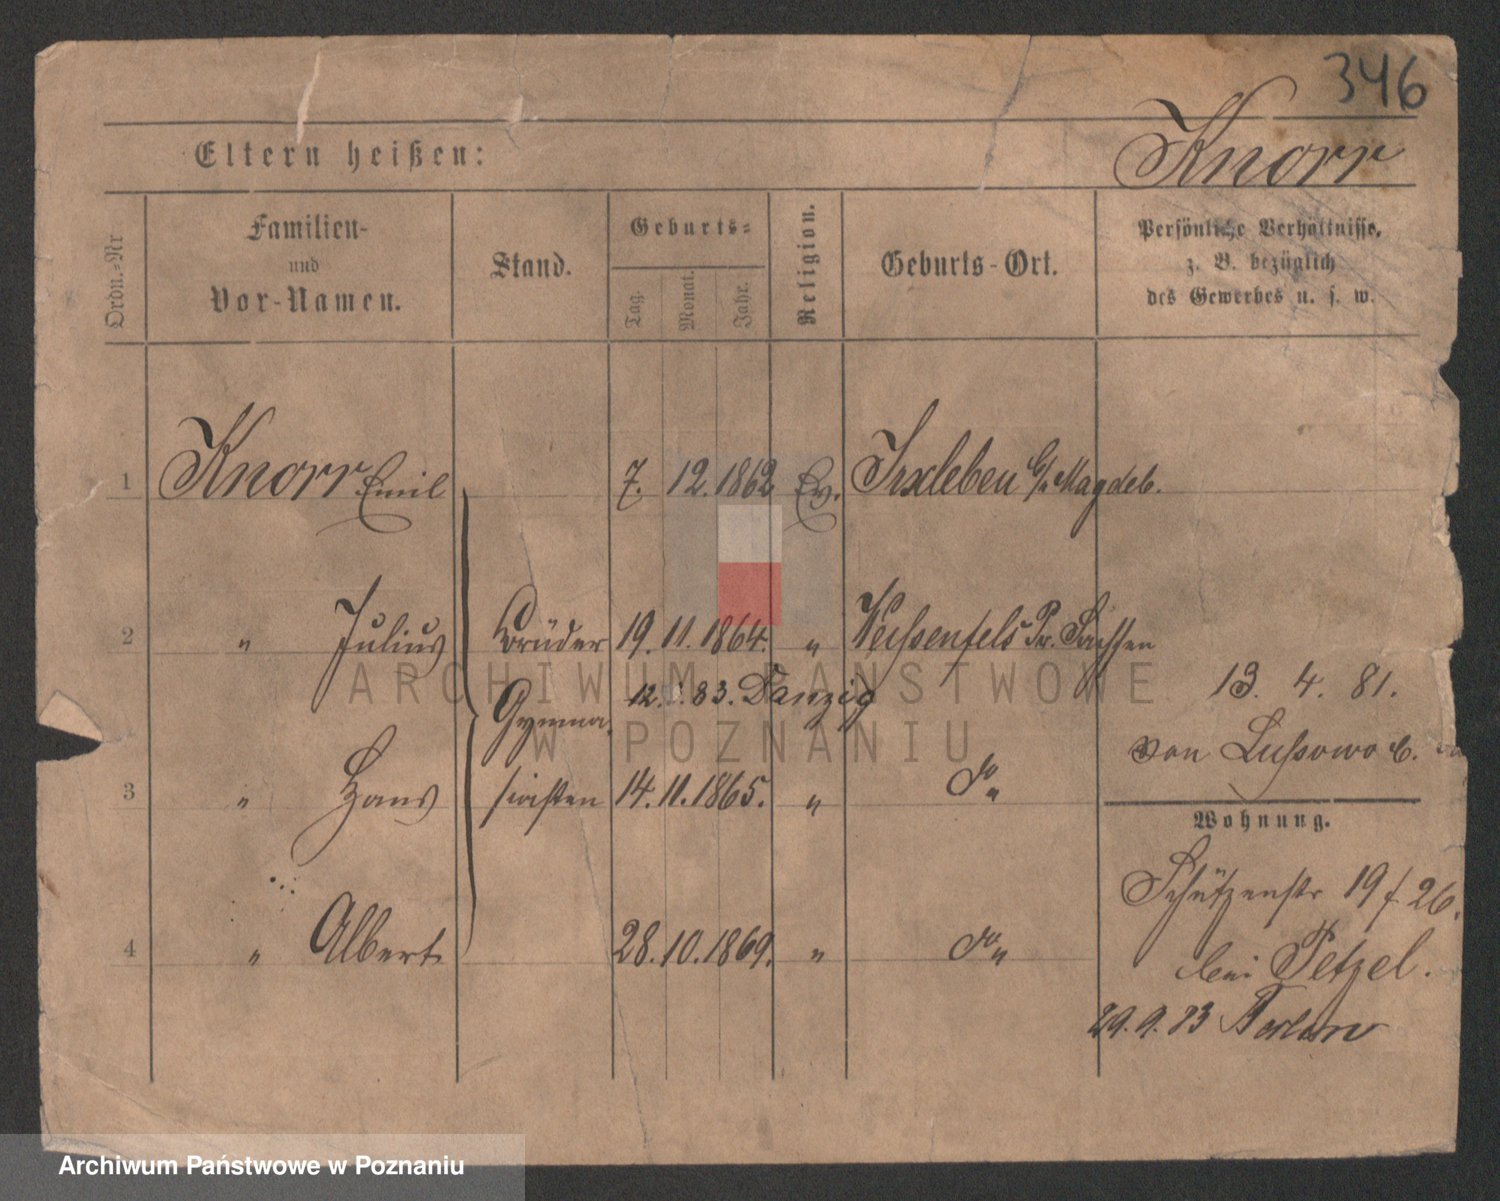 346
Knorr
Eltern heißen:
Ordn.-Nr.
Familien-
und
Vor-Namen.
Stand.
Geburts-
Tag.
Monat.
Jahr.
Religion.
Geburts-Ort.
Persönliche Verhältnisse,
z. B. bezüglich
des Gewerbes u. s. w.
1 Knorr Emil 7. 12. 1862 Ev. Irxleben b/Magdeb.
2 " Julius Brüder 19. 11. 1864. " Weissenfels Pr. Sachsen
Gymna- 12. 83. Danzig
3 " Hans siasten 14. 11. 1865. " do "
4 " Albert 28. 10. 1869. " do "
13. 4. 81.
von Lussowo
Wohnung.
Schützenstr 19 f. 26.
bei Petzel.
29. 9. 83
ARCHIWUM PAŃSTWOWE
W POZNANIU
Archiwum Państwowe w Poznaniu